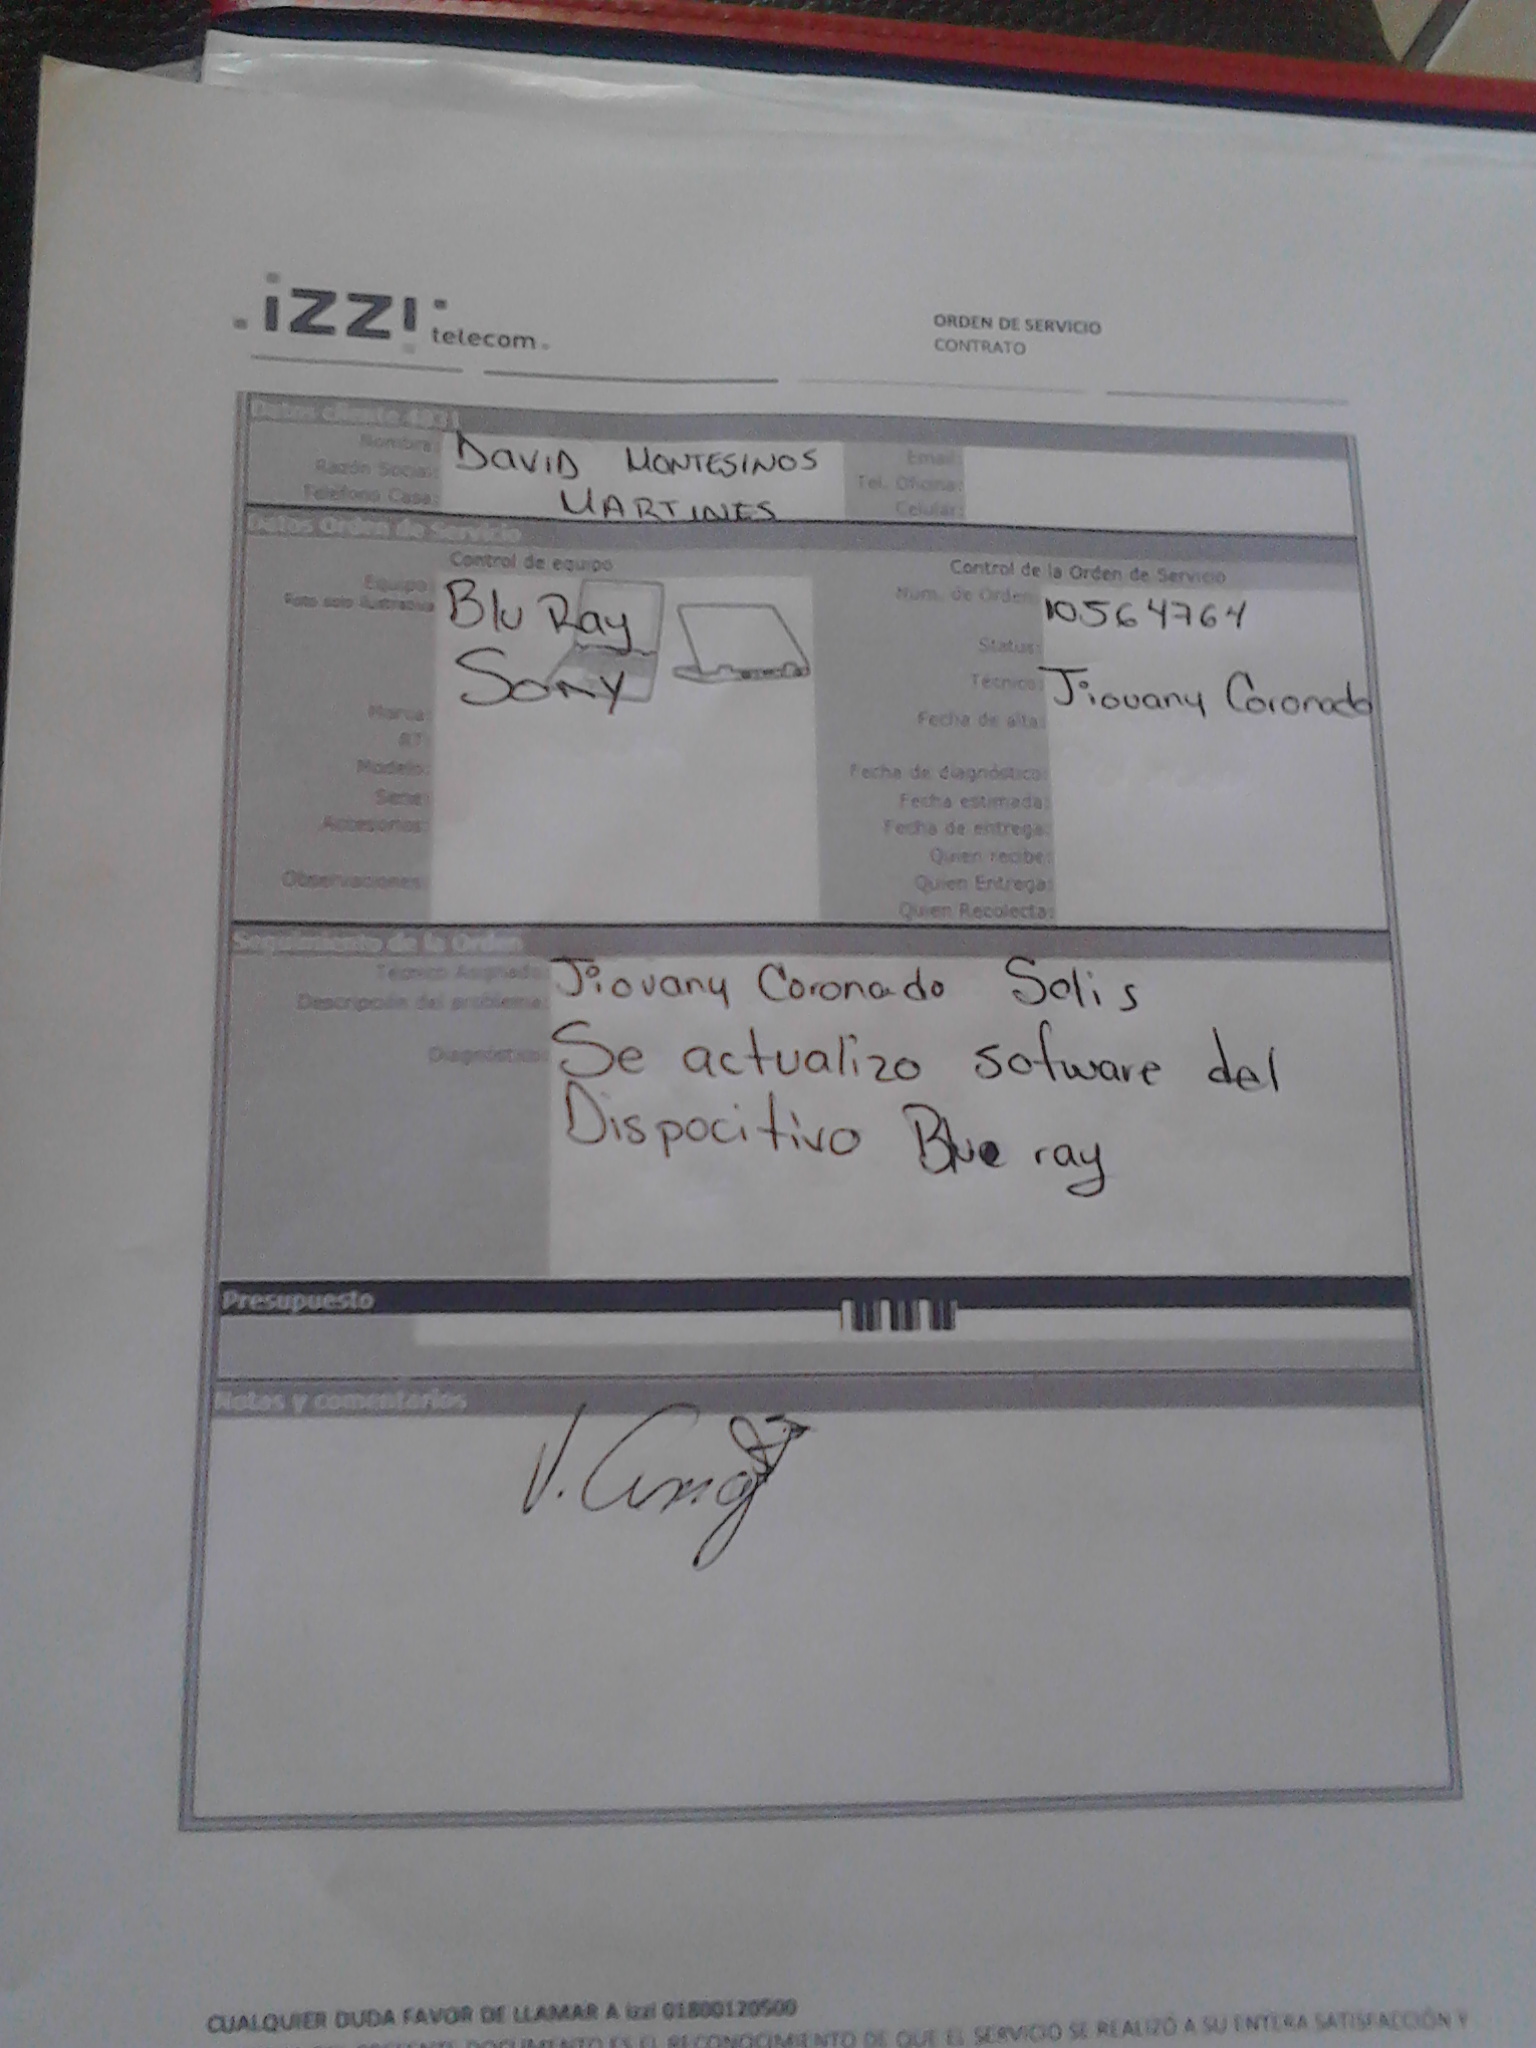 izzi telecom
ORDEN DE SERVICIO
CONTRATO
Datos cliente 4831
Nombre: DAVID MONTESINOS
Razón Social: MARTINES
Teléfono Casa:
Email:
Tel. Oficina:
Celular:
Datos Orden de Servicio
Control de equipo
Equipo: Blu Ray
Foto solo ilustrativa
Sony
Marca:
RT:
Modelo:
Serie:
Accesorios:
Observaciones:
Control de la Orden de Servicio
Num. de Orden: 10564764
Status:
Técnico: Jiovany Coronado
Fecha de alta:
Fecha de diagnóstico:
Fecha estimada:
Fecha de entrega:
Quien recibe:
Quien Entrega:
Quien Recolecta:
Seguimiento de la Orden
Técnico Asignado: Jiovany Coronado Solis
Descripción del problema:
Diagnóstico: Se actualizo sofware del
Dispocitivo Blue ray
Presupuesto
Notas y comentarios
CUALQUIER DUDA FAVOR DE LLAMAR A izzi 01800120500
PRESENTE DOCUMENTO ES EL RECONOCIMIENTO DE QUE EL SERVICIO SE REALIZÓ A SU ENTERA SATISFACCIÓN Y